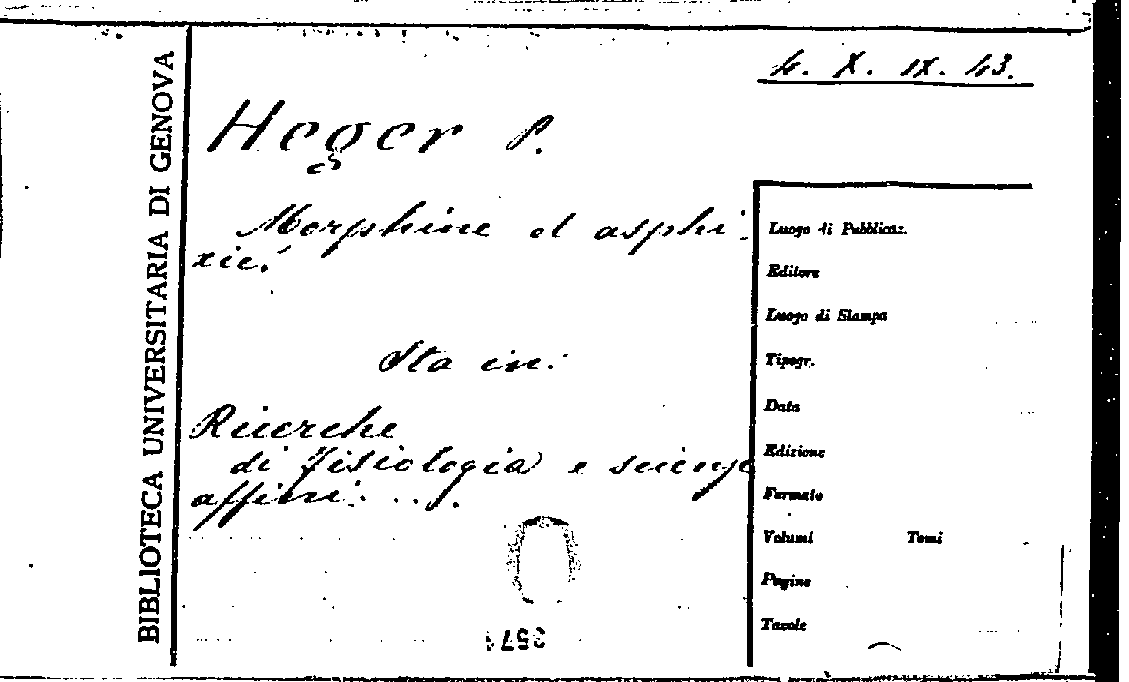 BIBLIOTECA UNIVERSITARIA DI GENOVA
4. X. IX. 43.
Heger P.
Morphine et asphi-
xie.
Sta in:
Ricerche
di fisiologia e scienze
affini. . . .
Luogo di Pubblicaz.
Editore
Luogo di Stampa
Tipogr.
Data
Edizione
Formato
Volumi Tomi
Pagine
Tavole